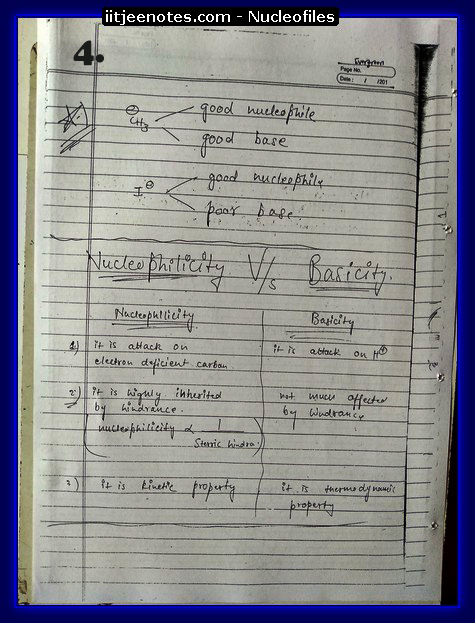 iitjeenotes.com - Nucleofiles
4.
Evergreen
Page No.
Date : / /201
⊖CH3 good nucleophile
good base
I⊖ good nucleophile
poor base
Nucleophilicity V/s Basicity.
Nucleophilicity Basicity
1) it is attack on it is attack on H⊕
electron deficient carbon
2) it is highly inherited not much affected
by hindrance. by hindrance
nucleophilicity ∝ 1
Sterric hindra.
3) it is kinetic property it is thermodynamic
property